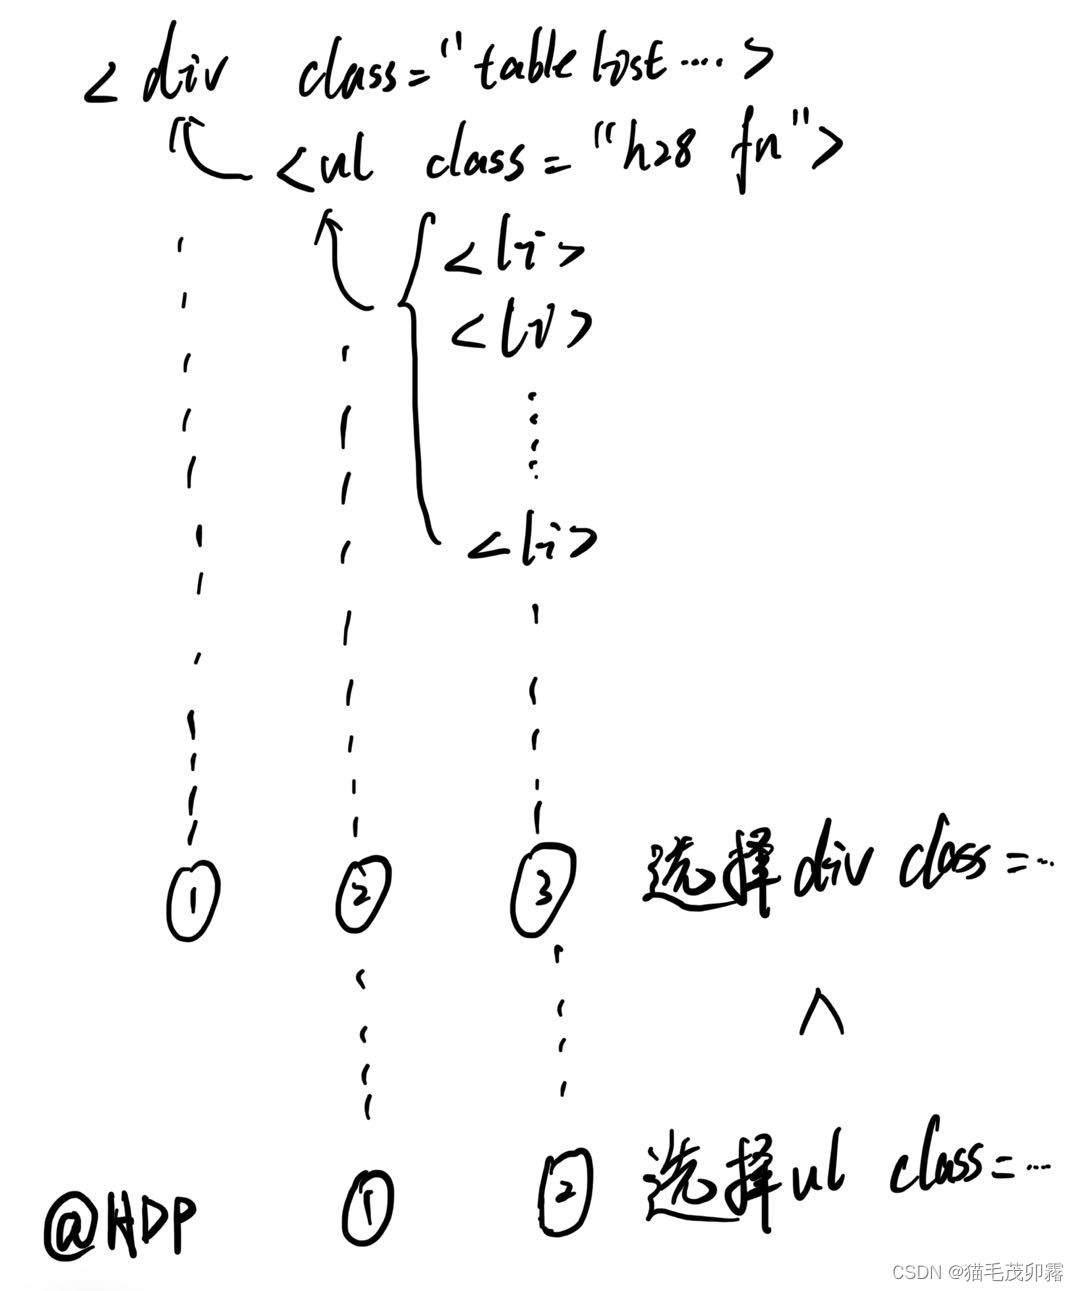 <div class="table list ....>
<ul class="h28 fn">
<li>
<li>
<li>
① ② ③ 选择div class=...
^
① ② 选择ul class=...
@HDP
CSDN @猫毛茂卯霧